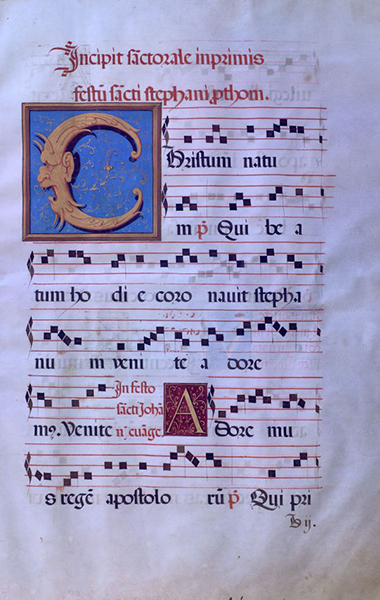 Incipit sãctorale inprimis
festũ sãcti stephani ꝓthom.
Christum natu
m p̃ Qui be a
tum ho di e coro nauit stepha
num veni te a dore
mꝰ. Venite In festo
sãcti Johã
nꝭ euãge. Adore mu
s regẽ apostolo rũ p̃ Qui pri
h ij.